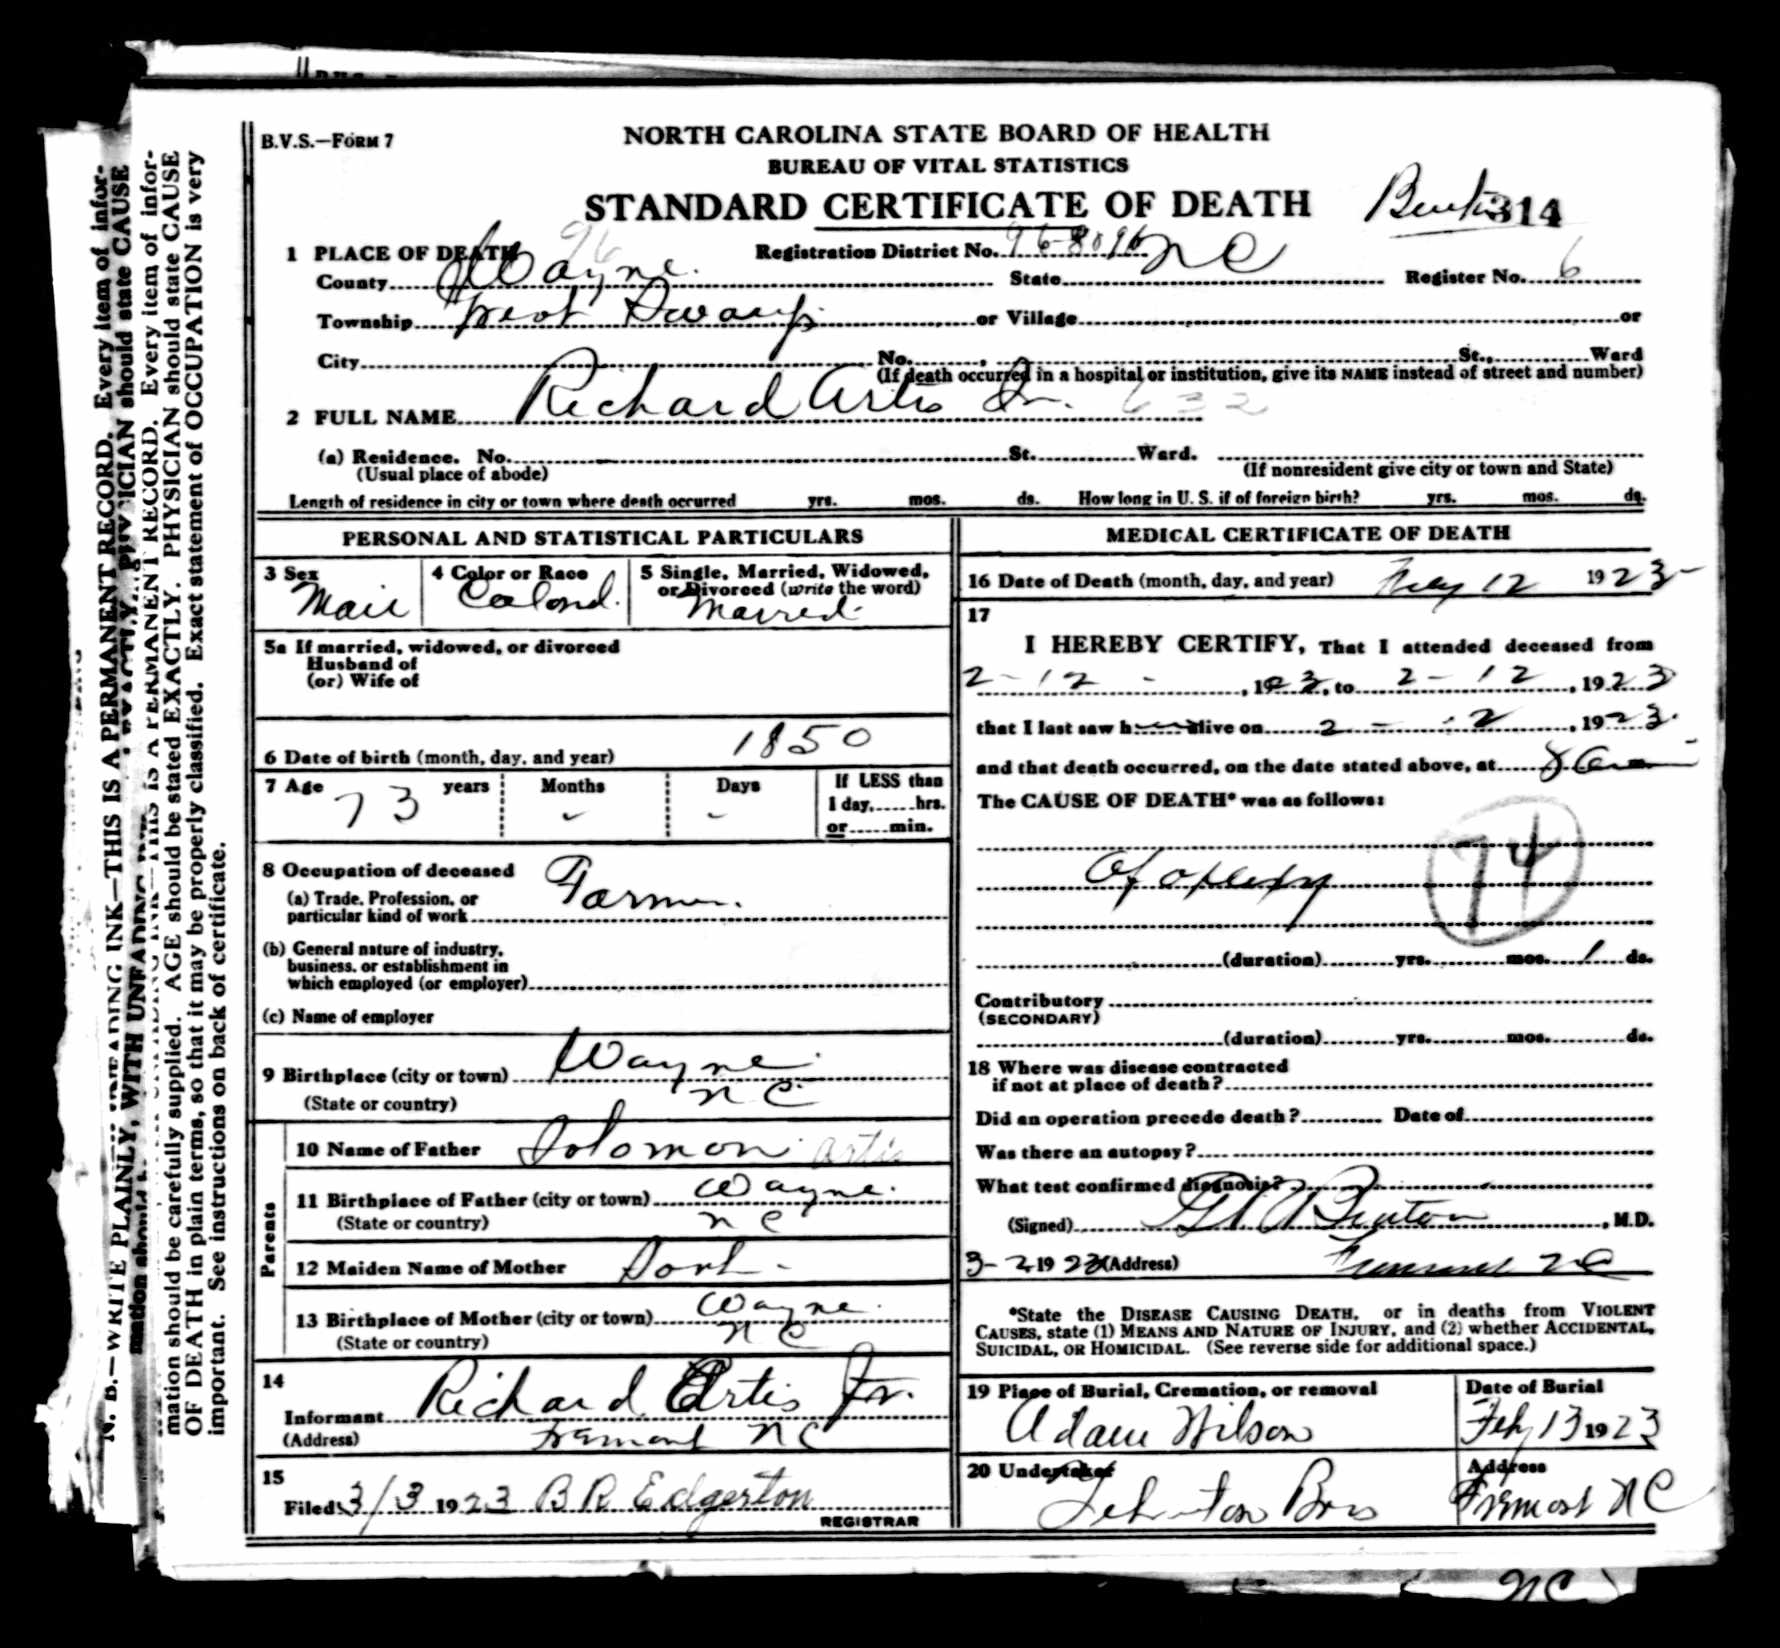 B.V.S.—FORM 7
NORTH CAROLINA STATE BOARD OF HEALTH
BUREAU OF VITAL STATISTICS
STANDARD CERTIFICATE OF DEATH 314
1 PLACE OF DEATH 96 Registration District No. 96-80 96
County Wayne. State NC Register No. 6
Township Great Swamp or Village or
City No. , St., Ward
(If death occurred in a hospital or institution, give its NAME instead of street and number)
2 FULL NAME Richard Artis Sr. 632
(a) Residence. No. St. Ward.
(Usual place of abode) (If nonresident give city or town and State)
Length of residence in city or town where death occurred yrs. mos. ds. How long in U. S. if of foreign birth? yrs. mos. ds.
PERSONAL AND STATISTICAL PARTICULARS
3 Sex 4 Color or Race 5 Single, Married, Widowed,
or Divorced (write the word)
Male Colond. Marred
5a If married, widowed, or divorced
Husband of
(or) Wife of
6 Date of birth (month, day, and year) 1850
7 Age 73 years Months - Days - If LESS than
1 day, hrs.
or min.
8 Occupation of deceased
(a) Trade, Profession, or
particular kind of work Farmer.
(b) General nature of industry,
business, or establishment in
which employed (or employer)
(c) Name of employer
9 Birthplace (city or town) Wayne
(State or country) NC
Parents
10 Name of Father Solomon Artis
11 Birthplace of Father (city or town) Wayne.
(State or country) NC
12 Maiden Name of Mother
13 Birthplace of Mother (city or town) Wayne.
(State or country) NC
14
Informant Richard Artis Jr.
(Address) Fremont NC
15
Filed 3/3 1923 B R Edgerton
REGISTRAR
MEDICAL CERTIFICATE OF DEATH
16 Date of Death (month, day, and year) Feby 12 1923
17
I HEREBY CERTIFY, That I attended deceased from
2-12 - , 1923, to 2-12 , 1923
that I last saw h alive on 2 - 12 , 1923.
and that death occurred, on the date stated above, at
The CAUSE OF DEATH* was as follows:
74
(duration) yrs. mos. 1 ds.
Contributory
(SECONDARY)
(duration) yrs. mos. ds.
18 Where was disease contracted
if not at place of death?
Did an operation precede death? Date of
Was there an autopsy?
What test confirmed diagnosis?
(Signed) Benton , M.D.
3-2 1923 (Address) Fremont NC
*State the DISEASE CAUSING DEATH, or in deaths from VIOLENT
CAUSES, state (1) MEANS AND NATURE OF INJURY, and (2) whether ACCIDENTAL,
SUICIDAL, OR HOMICIDAL. (See reverse side for additional space.)
19 Place of Burial, Cremation, or removal Date of Burial
Adam Wilson Feby 13 1923
20 Undertaker Address
Bros Fremont NC
NC
N. B.—WRITE PLAINLY, WITH UNFADING INK—THIS IS A PERMANENT RECORD. Every item of infor-
mation should be carefully supplied. AGE should be stated EXACTLY. PHYSICIAN should state CAUSE
OF DEATH in plain terms, so that it may be properly classified. Exact statement of OCCUPATION is very
important. See instructions on back of certificate.